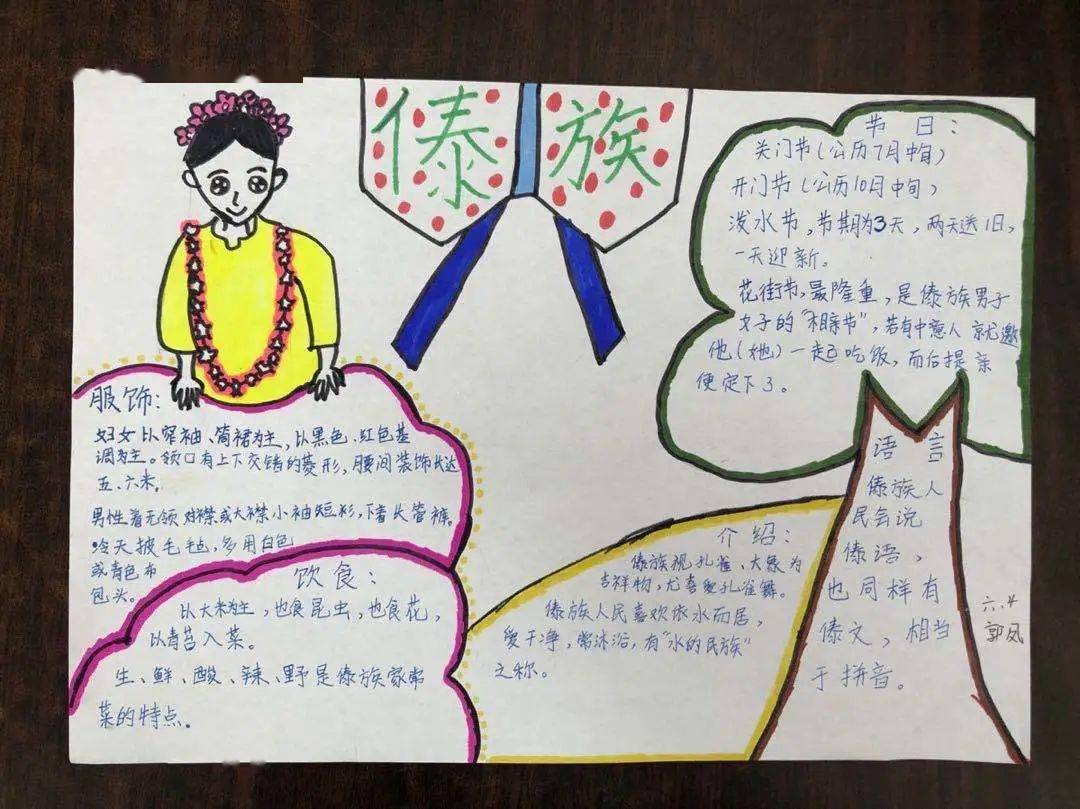 傣族
节日：
关门节（公历7月中旬）
开门节（公历10月中旬）
泼水节，节期为3天，两天送旧，
一天迎新。
花街节，最隆重，是傣族男子
女子的“相亲节”，若有中意人就邀
他（她）一起吃饭，而后提亲
便定下了。
服饰：
妇女以窄袖、筒裙为主，以黑色、红色基
调为主。领口有上下交错的菱形，腰间装饰长达
五、六米。
男性着无领对襟或大襟小袖短衫，下着长管裤。
冷天披毛毡，多用白色
或青色布
包头。
饮食：
以大米为主，也食昆虫，也食花，
以青苔入菜。
生、鲜、酸、辣、野是傣族家常
菜的特点。
介绍：
傣族视孔雀、大象为
吉祥物，尤喜爱孔雀舞。
傣族人民喜欢依水而居，
爱干净，常沐浴，有“水的民族”
之称。
语言
傣族人
民会说
傣语，
也同样有
傣文，相当
于拼音。
六.4
郭凤